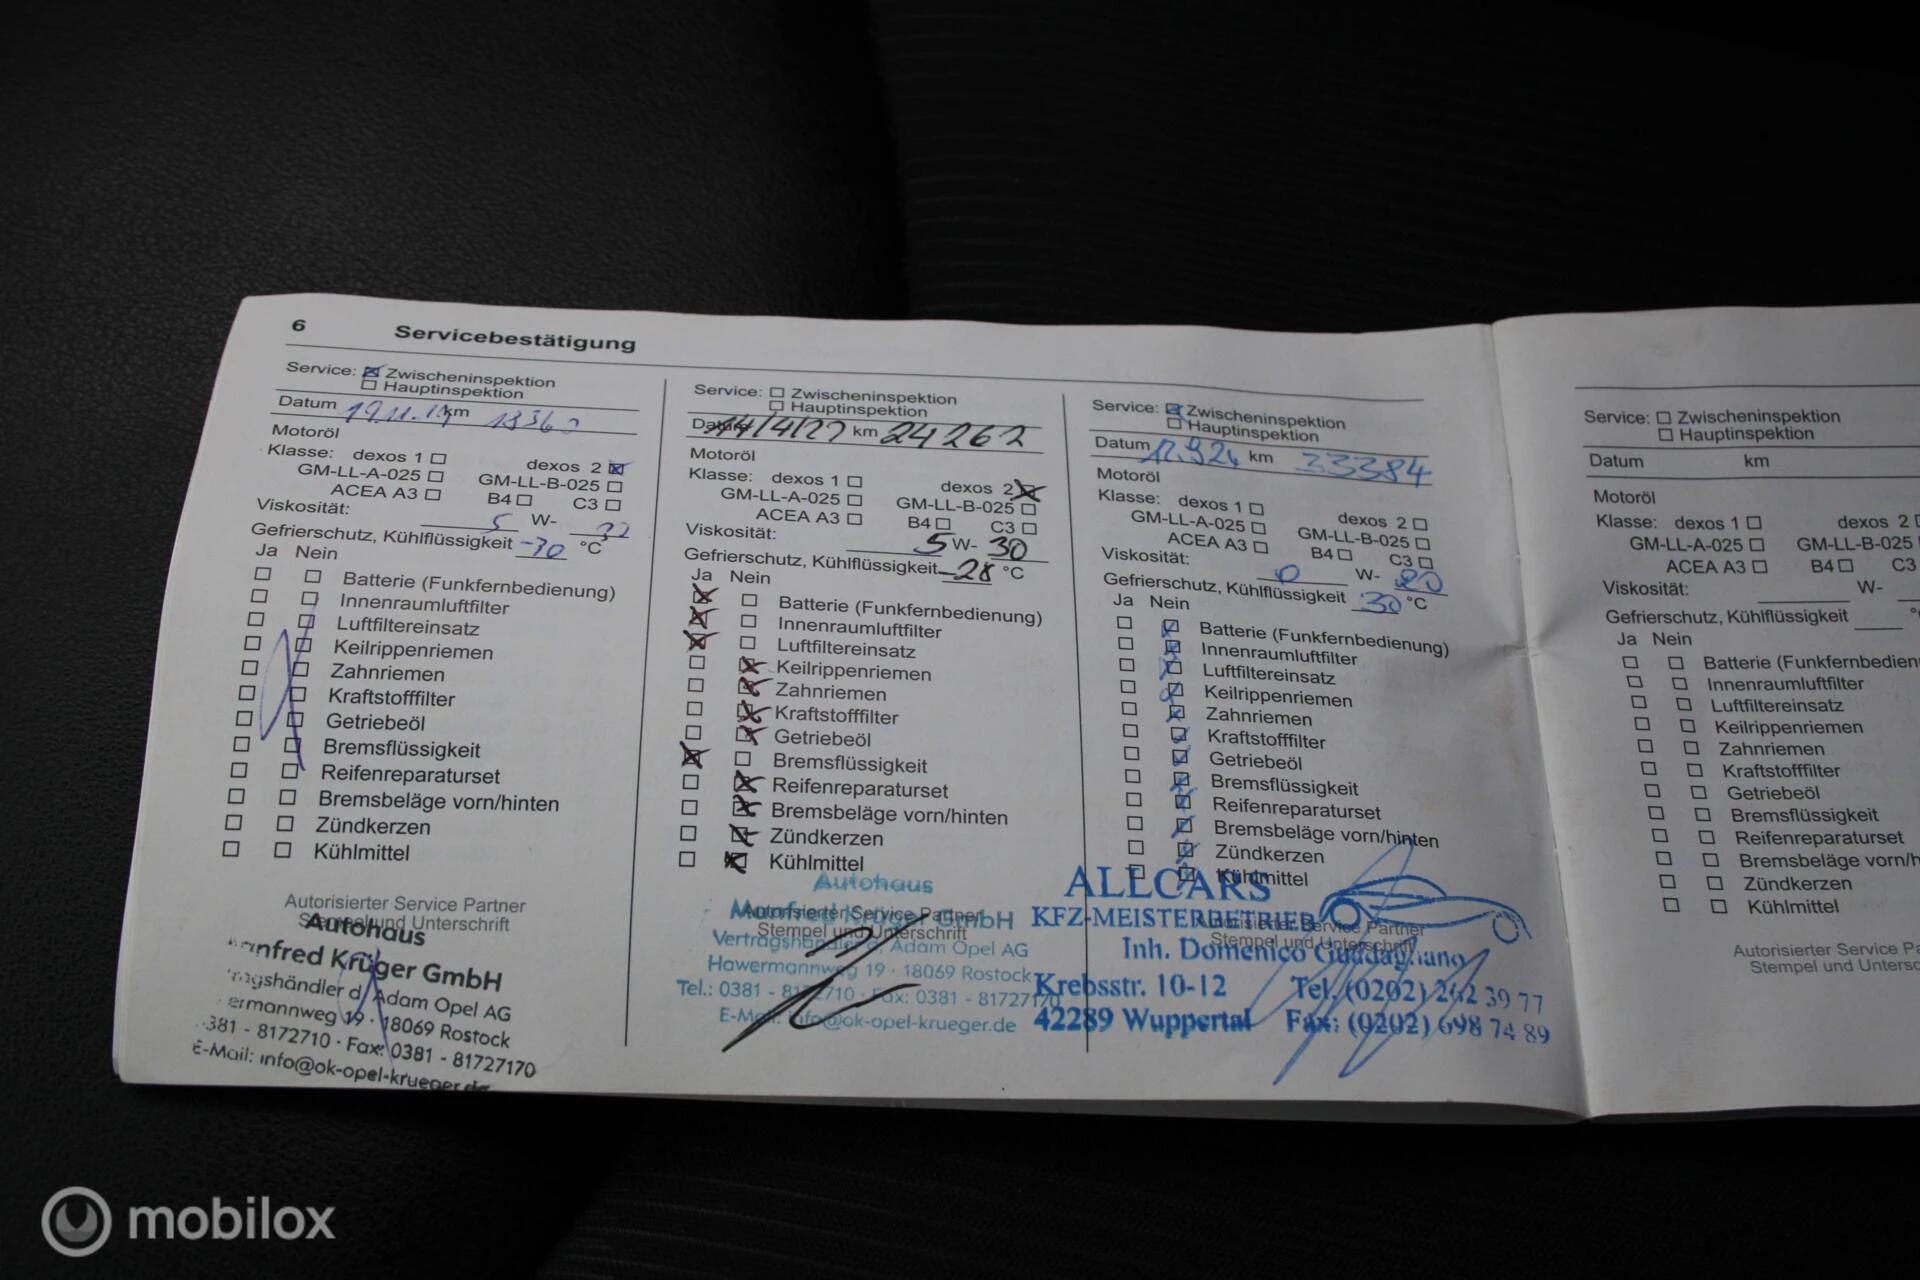 6 Servicebestätigung
Service: Zwischeninspektion
Hauptinspektion
Datum 19.11.19 km
Motoröl
Klasse: dexos 1 dexos 2
GM-LL-A-025 GM-LL-B-025
ACEA A3 B4 C3
Viskosität: 5 W-
Gefrierschutz, Kühlflüssigkeit -30 °C
Ja Nein
Batterie (Funkfernbedienung)
Innenraumluftfilter
Luftfiltereinsatz
Keilrippenriemen
Zahnriemen
Kraftstofffilter
Getriebeöl
Bremsflüssigkeit
Reifenreparaturset
Bremsbeläge vorn/hinten
Zündkerzen
Kühlmittel
Autorisierter Service Partner
Stempel und Unterschrift
Autohaus
Krüger GmbH
d. Adam Opel AG
19 · 18069 Rostock
0381 - 8172710 · Fax: 0381 - 81727170
E-Mail: info@ok-opel-krueger.de
Service: Zwischeninspektion
Hauptinspektion
Datum 14/4/22 km 24262
Motoröl
Klasse: dexos 1 dexos 2
GM-LL-A-025 GM-LL-B-025
ACEA A3 B4 C3
Viskosität: 5 W- 30
Gefrierschutz, Kühlflüssigkeit -28 °C
Ja Nein
Batterie (Funkfernbedienung)
Innenraumluftfilter
Luftfiltereinsatz
Keilrippenriemen
Zahnriemen
Kraftstofffilter
Getriebeöl
Bremsflüssigkeit
Reifenreparaturset
Bremsbeläge vorn/hinten
Zündkerzen
Kühlmittel
Autorisierter Service Partner
Stempel und Unterschrift
Autohaus
Manfred Krüger GmbH
Vertragshändler d. Adam Opel AG
Hawermannweg 19 · 18069 Rostock
Tel.: 0381 - 8172710 · Fax: 0381 - 81727170
E-Mail: info@ok-opel-krueger.de
Service: Zwischeninspektion
Hauptinspektion
Datum 12.9.24 km 33384
Motoröl
Klasse: dexos 1 dexos 2
GM-LL-A-025 GM-LL-B-025
ACEA A3 B4 C3
Viskosität: 0 W- 20
Gefrierschutz, Kühlflüssigkeit 30 °C
Ja Nein
Batterie (Funkfernbedienung)
Innenraumluftfilter
Luftfiltereinsatz
Keilrippenriemen
Zahnriemen
Kraftstofffilter
Getriebeöl
Bremsflüssigkeit
Reifenreparaturset
Bremsbeläge vorn/hinten
Zündkerzen
Kühlmittel
Autorisierter Service Partner
Stempel und Unterschrift
ALLCARS
KFZ-MEISTERBETRIEB
Inh. Domenico Guadagnano
Krebsstr. 10-12 Tel. (0202) 262 39 77
42289 Wuppertal Fax: (0202) 698 74 89
Service: Zwischeninspektion
Hauptinspektion
Datum km
Motoröl
Klasse: dexos 1 dexos 2
GM-LL-A-025 GM-LL-B-025
ACEA A3 B4 C3
Viskosität: W-
Gefrierschutz, Kühlflüssigkeit
Ja Nein
Batterie (Funkfernbedien
Innenraumluftfilter
Luftfiltereinsatz
Keilrippenriemen
Zahnriemen
Kraftstofffilter
Getriebeöl
Bremsflüssigkeit
Reifenreparaturset
Bremsbeläge vorn/h
Zündkerzen
Kühlmittel
Autorisierter Service Pa
Stempel und Untersc
mobilox